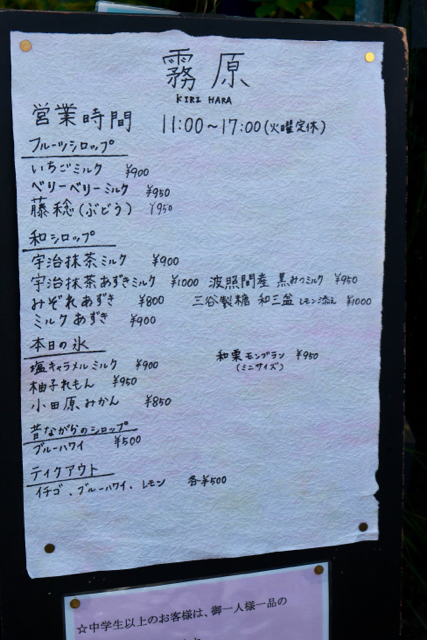 霧原
KIRI HARA
営業時間 11:00～17:00(火曜定休)
フルーツシロップ
いちごミルク ¥900
ベリーベリーミルク ¥950
藤稔(ぶどう) ¥950
和シロップ
宇治抹茶ミルク ¥900
宇治抹茶あずきミルク ¥1000 波照間産 黒みつミルク ¥950
みぞれあずき ¥800 三谷製糖 和三盆 レモン添え ¥1000
ミルクあずき ¥900
本日の氷
塩キャラメルミルク ¥900 和栗モンブラン ¥950
(ミニサイズ)
柚子れもん ¥950
小田原みかん ¥850
昔ながらのシロップ
ブルーハワイ ¥500
テイクアウト
イチゴ、ブルーハワイ、レモン 各¥500
☆中学生以上のお客様は、御一人様一品の